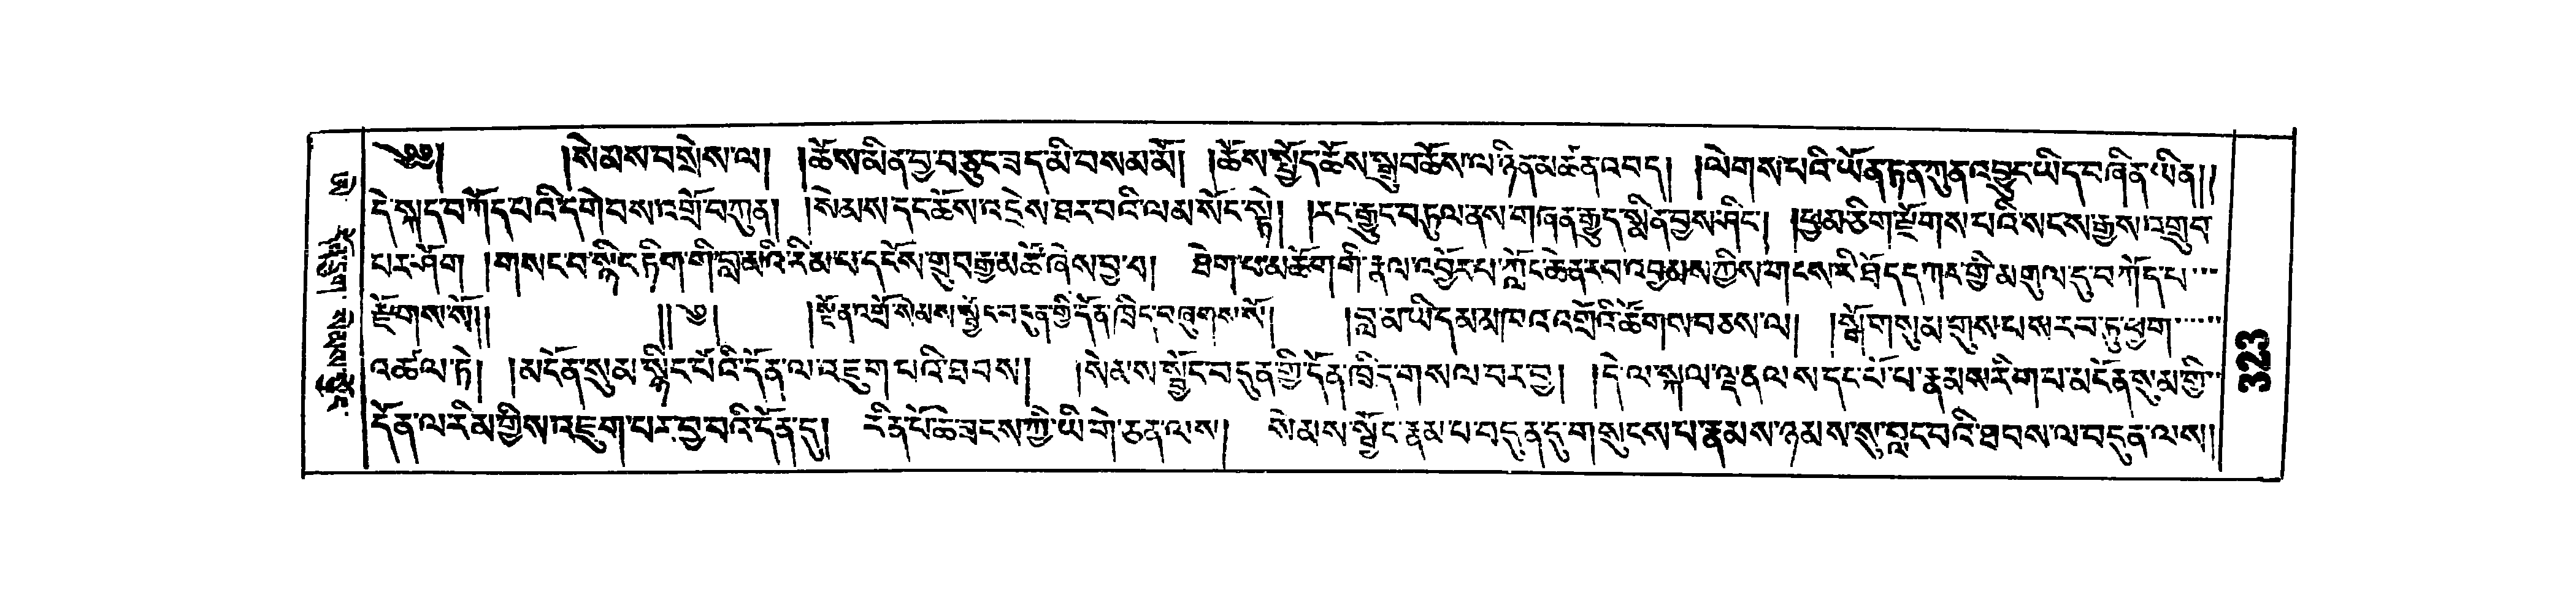 ༄༅། །སེམས་བསྲེས་ལ། །ཆོས་མིན་བྱ་བ་རྩུང་ཟད་མི་བསམ་མོ། །ཆོས་སྤྱོད་ཆོས་སྒྲུབ་ཆོས་ལ་ཉིན་མཚན་འབད། །ལེགས་པའི་ཡོན་ཏན་ཀུན་འབྱུང་ཡིད་བཞིན་ཡིན།།
དེ་སྐད་བཀོད་པའི་དགེ་བས་འགྲོ་བ་ཀུན། །སེམས་དང་ཆོས་འདྲེས་ཐར་བའི་ལམ་སོང་སྟེ། །རང་རྒྱུད་བཏུལ་ནས་གཞན་རྒྱུད་སྨིན་བྱས་ཤིང་། །ཕྱམ་ཅིག་རྫོགས་པའི་སངས་རྒྱས་འགྲུབ་
པར་ཤོག །གསང་བ་སྙིང་ཏིག་གི་བླ་མའི་རིམ་པ་དངོས་གྲུབ་རྒྱ་མཚོ་ཞེས་བྱ་བ། ཐེག་པ་མཆོག་གི་རྣལ་འབྱོར་པ་ཀློང་ཆེན་རབ་འབྱམས་ཀྱིས་གངས་རི་ཐོད་དཀར་གྱི་མགུལ་དུ་བཀོད་པ་
རྫོགས་སོ།། །།༄། །སྔོན་འགྲོ་སེམས་སྦྱོང་བདུན་གྱི་དོན་ཁྲིད་བཞུགས་སོ། །བླ་མ་ཡི་དམ་མཁའ་འགྲོའི་ཚོགས་བཅས་ལ། །སྒོ་གསུམ་གུས་པས་རབ་ཏུ་ཕྱག་
འཚལ་ཏེ། །མངོན་སུམ་སྙིང་པོའི་དོན་ལ་འཇུག་པའི་ཐབས། །སེམས་སྦྱོང་བདུན་གྱི་དོན་ཁྲིད་གསལ་བར་བྱ། །དེ་ལ་སྐལ་ལྡན་ལས་དང་པོ་པ་རྣམས་རིག་པ་མངོན་སུམ་གྱི་
དོན་ལ་རིམ་གྱིས་འཇུག་པར་བྱ་བའི་དོན་དུ། རིན་པོ་ཆེ་ཟངས་ཀྱི་ཡི་གེ་ཅན་ལས། སེམས་སྦྱོང་རྣམ་པ་བདུན་དུ་གསུངས་པ་རྣམས་ཉམས་སུ་བླང་བའི་ཐབས་ལ་བདུན་ལས།